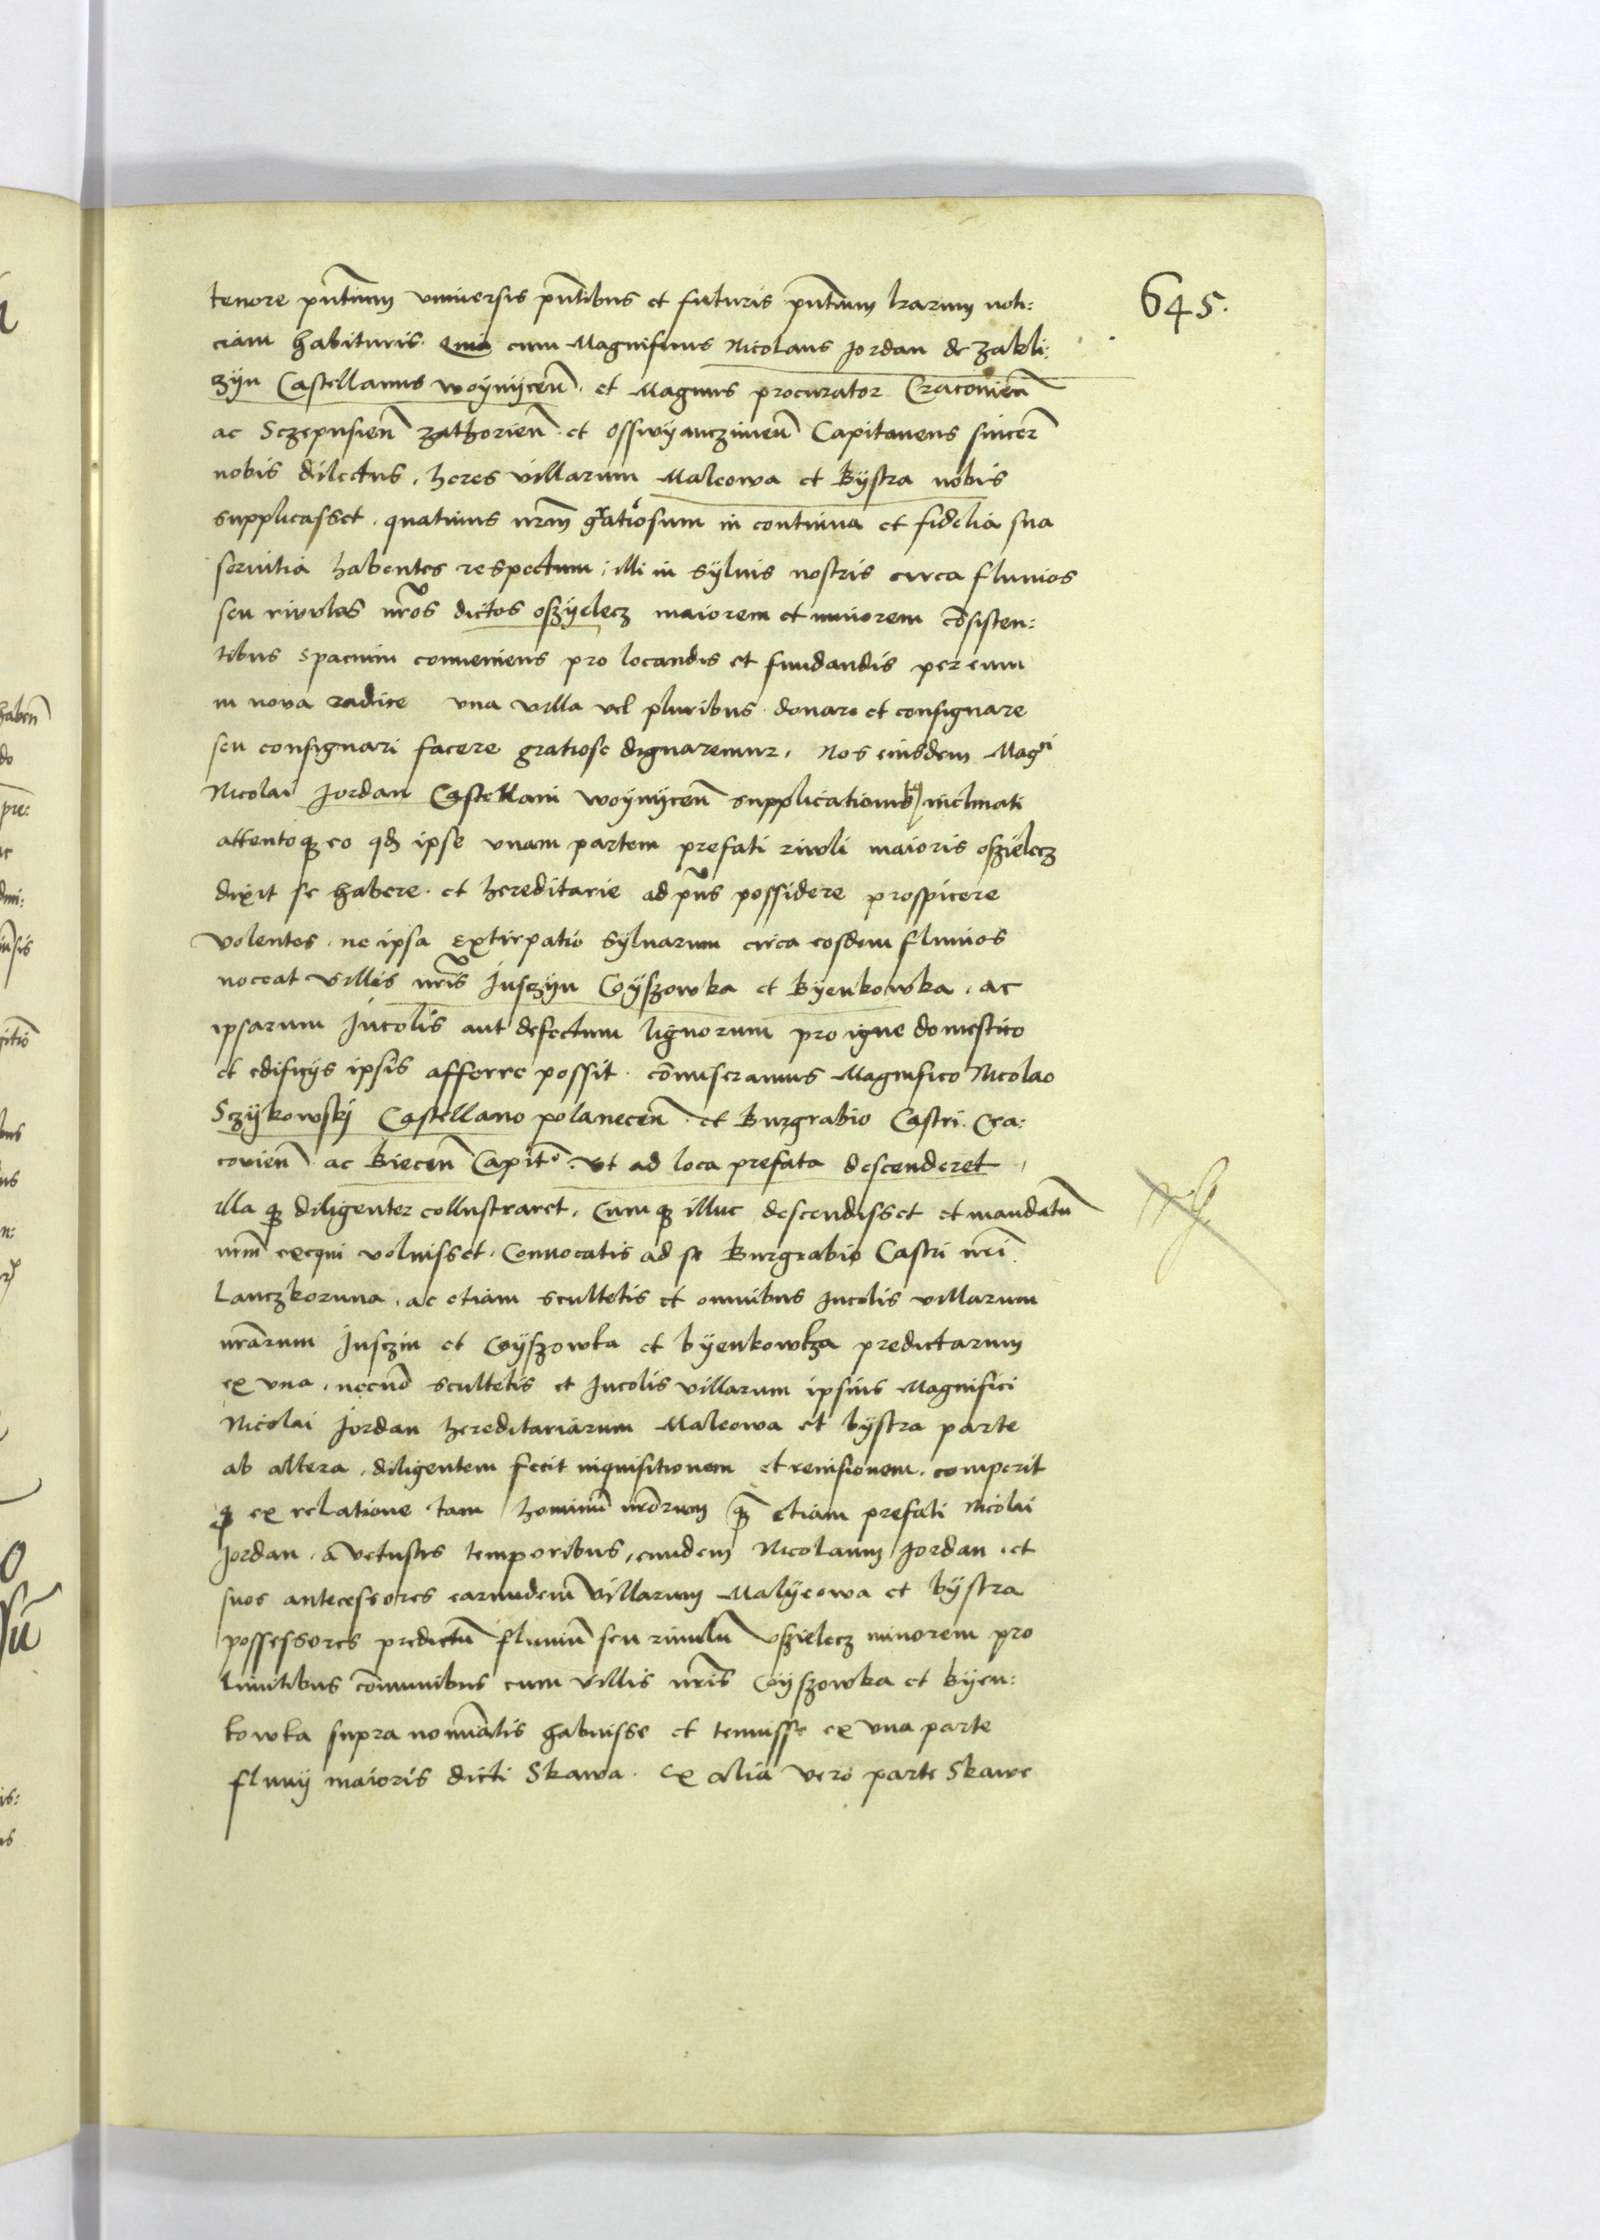 645.
tenore pntium universis pntibus et futuris pntium lrarum noti:
ciam habituris. Quia cum Magnificus Nicolaus Jordan de Zakli:
zijn Castellanus woynycen̄. et Magnus procurator Cracovien̄
ac Sczepusien̄ zathorien̄. et osswyanczimen̄ Capitaneus sincer̄
nobis dilectus, heres villarum Maleowa et Bystra nobis
supplicasset, quatinus nrm̄ gratiosum in continua et fidelia sua
servitia habentes respectum, illi in sylvis nostris circa fluvios
seu rivulos nros dictos oszyelecz maiorem et minorem cōsisten:
tibus spacium conveniens pro locandis et fundandis per eum
in nova radice una villa vel pluribus donare et consignare
seu consignari facere gratiose dignaremur. Nos eiusdem Magci
Nicolai Jordan Castellani woynycen̄ supplicationibus inclinati
attentoqz eo qd ipse unam partem prefati rivuli maioris oszielecz
dixit se habere et hereditarie ad pns possidere prospicere
volentes, ne ipsa extirpatio sylvarum circa eosdem fluvios
noceat villis nris Jusczyn Cyszowka et Byenkowka, ac
ipsarum Incolis aut defectum lignorum pro igne domestico
et edificijs ipsis afferre possit. cōmiseramus Magnifico Nicolao
Sczykowskj Castellano polanecen̄ et Burgrabio Castri Cra:
covien̄ ac Biecen̄ Capit̄o. ut ad loca prefata descenderet,
illa qz diligenter collustraret, Cum qz illuc descendisset et mandatū
nrm̄ exequi voluisset. Convocatis ad se Burgrabio Castri nri
Lanczkoruna, ac etiam scultetis et omnibus Incolis villarum
nrarum Jusczin et Cyszowka et byenkowka predictarum
ex una, necnō scultetis et Incolis villarum ipsius Magnifici
Nicolai Jordan hereditariarum Maleowa et bystra parte
ab altera, diligentem fecit inquisitionem et revisionem. comperit
qz ex relatione tam hominū nrorum qz̄ etiam prefati Nicolai
Jordan, a vetustis temporibus, eundem Nicolaum Jordan et
suos antecessores earundem villarum Malyeowa et bystra
possessores predictū fluviū seu rivulū oszielecz minorem pro
limitibus cōmunibus cum villis nris Cyszowka et Byen:
kowka supra nominatis habuisse et tenuisse ex una parte
fluvij maioris dicti Skawa. Ex alia vero parte Skawe